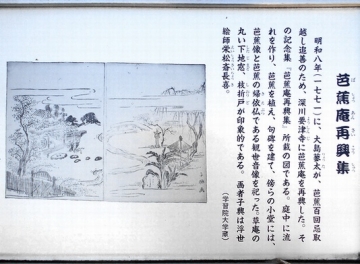 芭蕉庵再興集
ばしょうあんさいこうしゅう
明和八年(一七七一)に、大島蓼太が、芭蕉百回忌取
越し追善のため、深川要津寺に芭蕉庵を再興した。そ
の記念集『芭蕉庵再興集』所載の図である。庭中に流
れを作り、芭蕉を植え、句碑を建て、傍らの小堂には、
芭蕉像と芭蕉の帰依仏である観世音像を祀った。草庵の
丸い下地窓、枝折戸が印象的である。画者子興は浮世
絵師栄松斎長喜。
(学習院大学蔵)